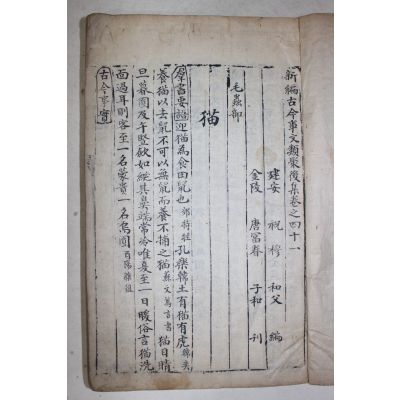 新編古今事文類聚後集卷之四十一
建安 祝穆 和父 編
金陵 唐富春 子和 刊
毛蟲部
猫
羣書要語迎猫為食田鼠也郊特牲孔樂韓土有猫有虎韓奕
養猫以去鼠不可以無鼠而養不捕之猫蘇文萬言書猫目睛
旦暮圓及午豎歛如綖其鼻端常冷唯夏至一日暖俗言猫洗
面過耳則客至一名蒙貴一名烏圓酉陽雜俎
古今事實